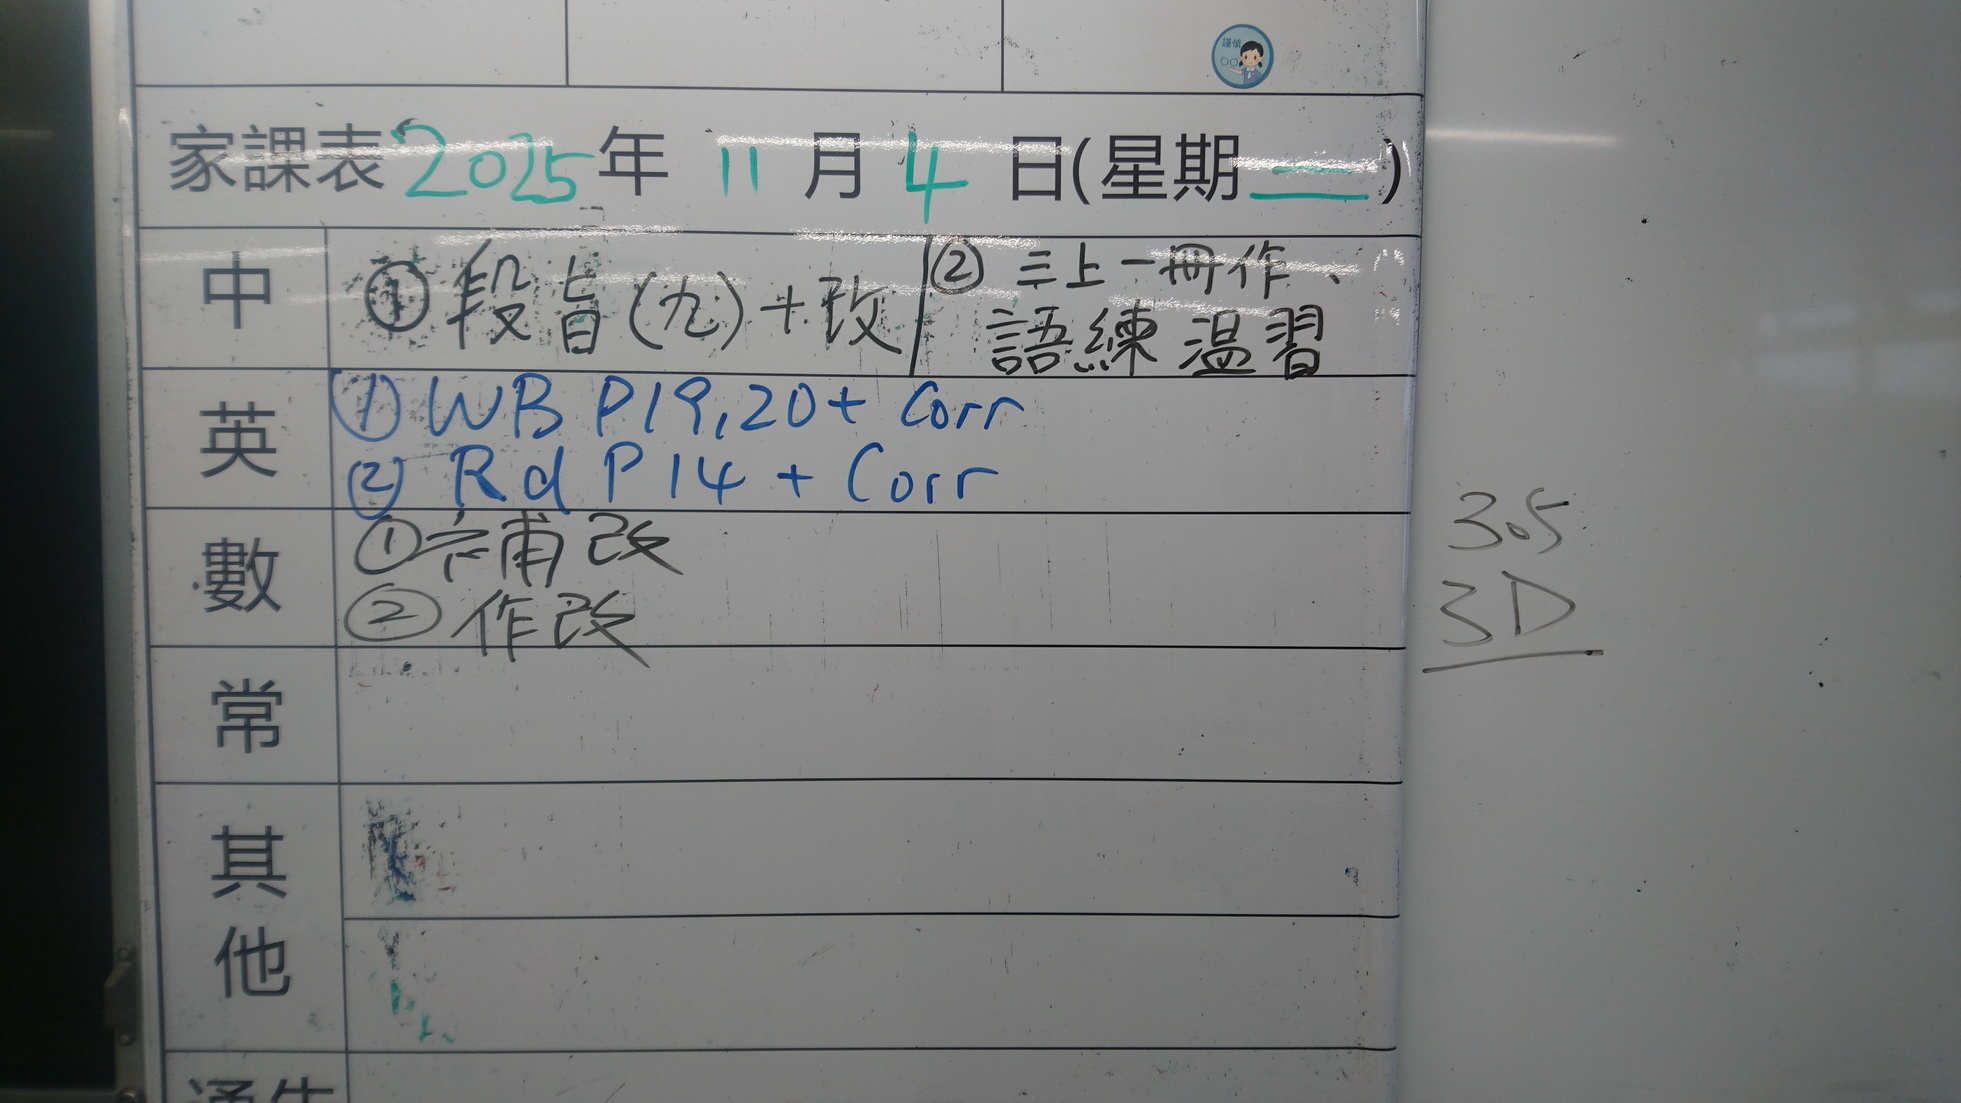 謹慎
家課表 2025 年 11 月 4 日(星期二)
中 ① 段旨(九)+改 ② 三上一冊作、
語練溫習
英 ① WB P19,20 + Corr
② Rd P14 + Corr
數 ① 補改
② 作改
常
其他
通告
305
3D